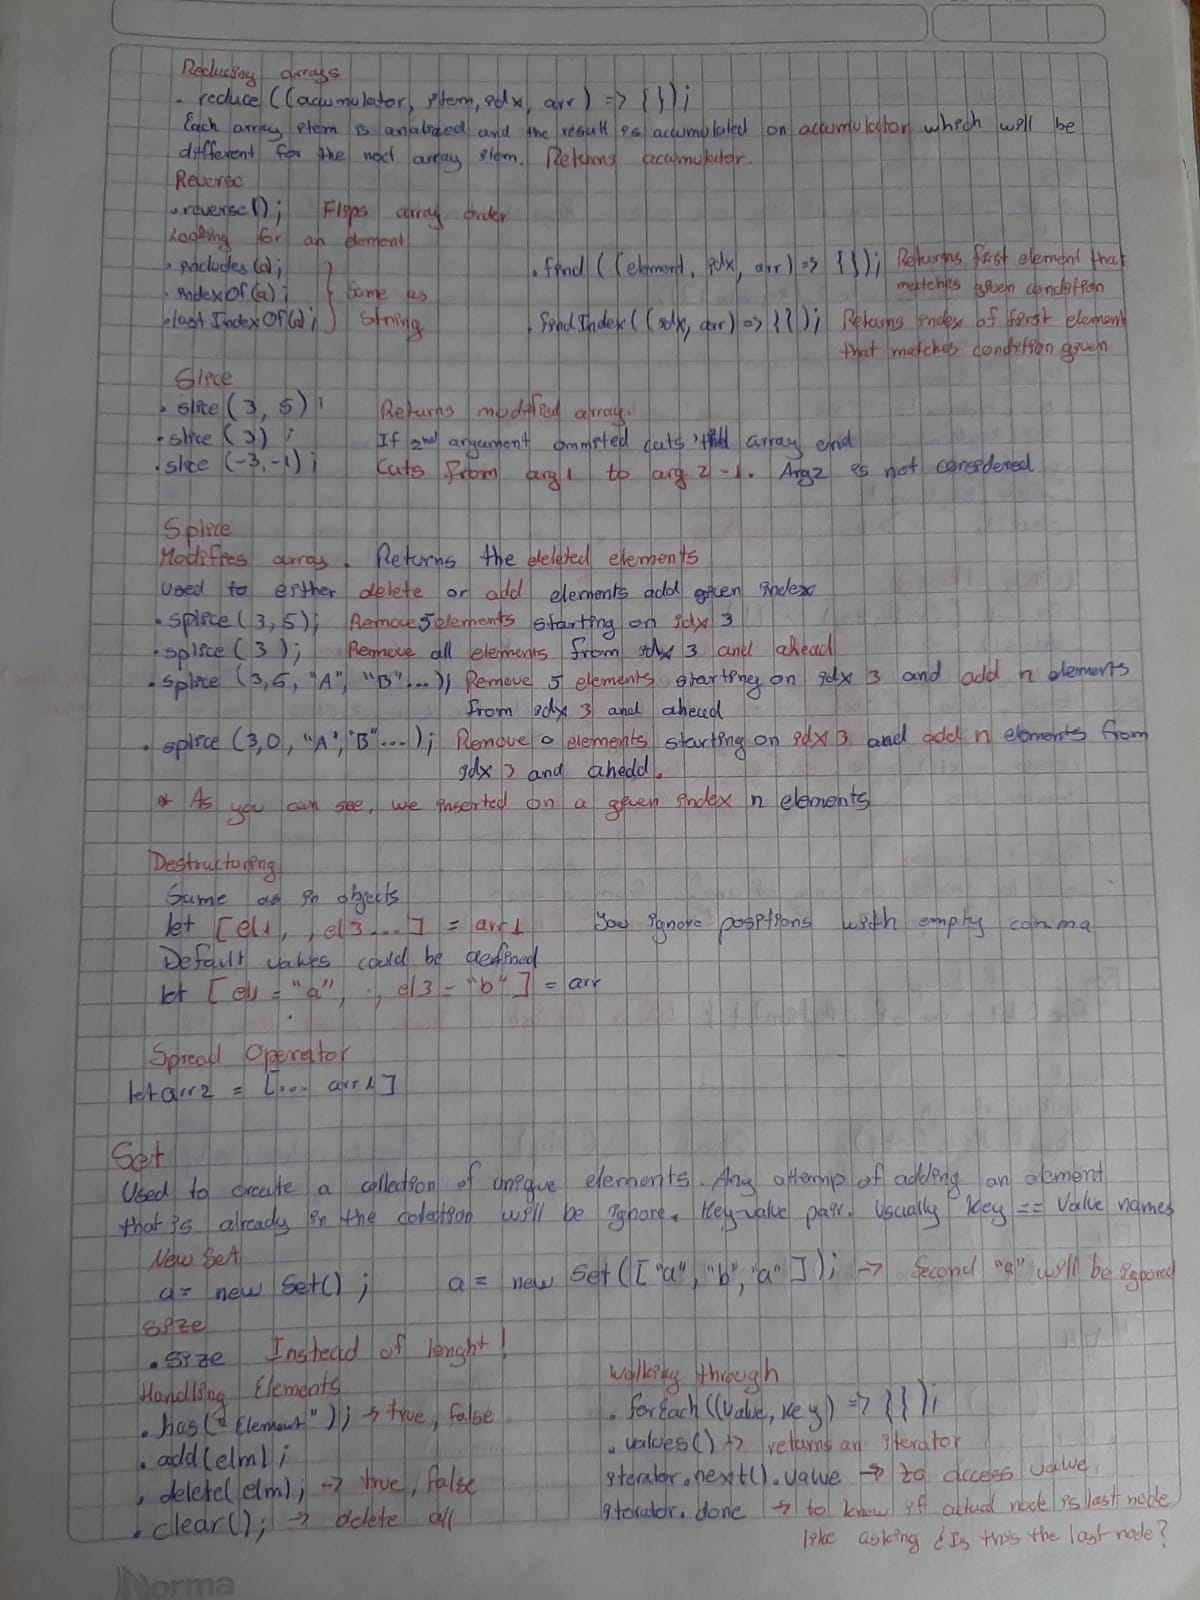 Reducing arrays
. reduce ((acumulator, item, idx, arr) => { });
Each array item is analized and the result is accumulated on accumulator which will be
different for the next array item. Returns accumulator.
Reverse
.reverse(); Flips array order
Looking for an element
. includes (a);
. indexOf(a);
. lastIndexOf(a);
Same as
string
. find ((element, idx, arr) => { }); Returns first element that
matches given condition
. findIndex ((idx, arr) => { }); Returns index of first element
that matches condition given
Slice
. slice (3, 5); Returns modified array.
. slice (3); If 2nd argument ommited cuts 'till array end
. slice (-3,-1); Cuts from arg1 to arg2-1. Arg2 is not considered
Splice
Modifies array. Returns the deleted elements
Used to either delete or add elements add given index
. splice (3, 5); Remove 5 elements starting on idx 3
. splice (3); Remove all elements from idx 3 and ahead
. splice (3,5, "A", "B"...); Remove 5 elements starting on idx 3 and add n elements
from idx 3 and ahead
. splice (3,0, "A", "B"...); Remove 0 elements starting on idx 3 and add n elements from
idx 3 and ahedd.
* As you can see, we inserted on a given index n elements
Destructuring
Same as in objects
let [el1, , el3...] = arr1 You ignore positions with empty comma
Default values could be defined
let [el1 = "a", , el3 = "b"] = arr
Spread Operator
let arr2 = [... arr1]
Set
Used to create a collection of unique elements. Any attemp of adding an element
that is already in the colection will be ignore. Key-value pair. Usually key == value names
New Set
a = new Set(); a = new Set (["a", "b", "a"]); -> Second "a" will be ignored
Size
. size Instead of lenght!
Handling Elements
. has("Element"); -> true, false
. add(elm);
. delete(elm); -> true, false
. clear(); -> delete all
Walking through
. forEach ((value, key) => { });
. values() -> returns an iterator
iterator.next().value -> to access value
iterator.done -> to know if actual node is last node
like asking ¿Is this the last node?
Norma